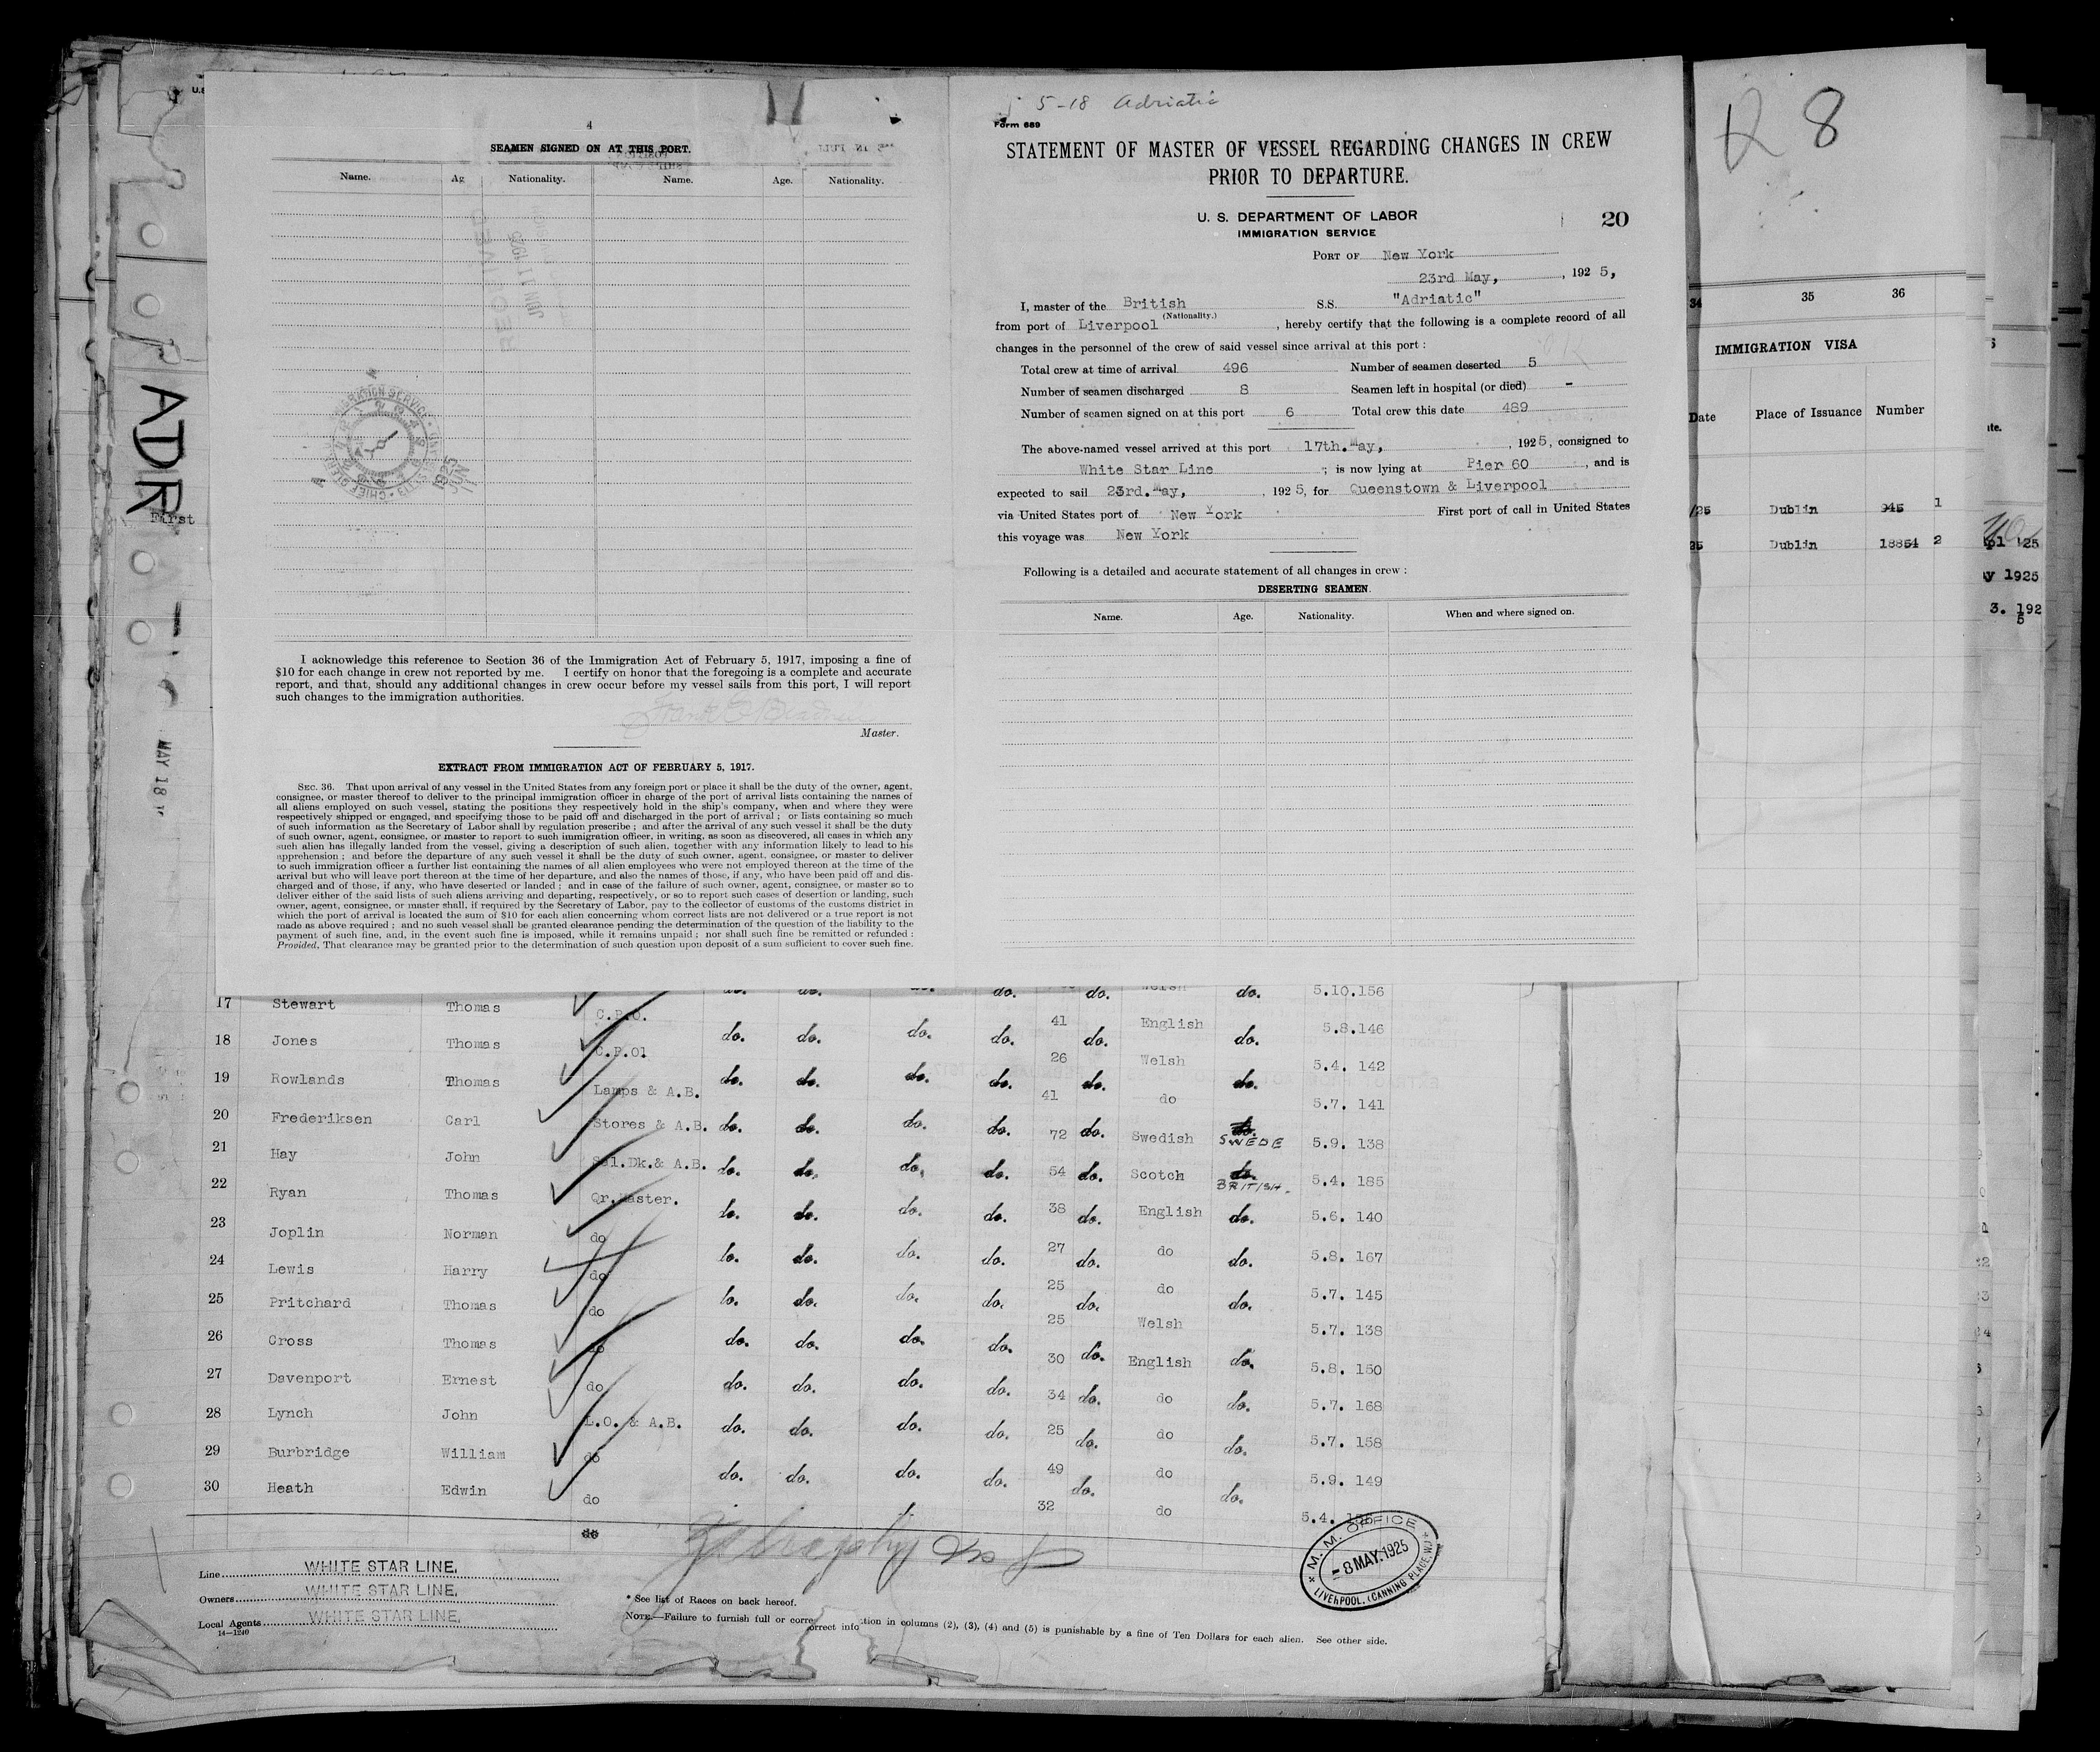 5-18 Adriatic
4
SEAMEN SIGNED ON AT THIS PORT.
Name. Ag Nationality. Name. Age. Nationality.
I acknowledge this reference to Section 36 of the Immigration Act of February 5, 1917, imposing a fine of
$10 for each change in crew not reported by me. I certify on honor that the foregoing is a complete and accurate
report, and that, should any additional changes in crew occur before my vessel sails from this port, I will report
such changes to the immigration authorities.
Master.
EXTRACT FROM IMMIGRATION ACT OF FEBRUARY 5, 1917.
SEC. 36. That upon arrival of any vessel in the United States from any foreign port or place it shall be the duty of the owner, agent,
consignee, or master thereof to deliver to the principal immigration officer in charge of the port of arrival lists containing the names of
all aliens employed on such vessel, stating the positions they respectively hold in the ship's company, when and where they were
respectively shipped or engaged, and specifying those to be paid off and discharged in the port of arrival; or lists containing so much
of such information as the Secretary of Labor shall by regulation prescribe; and after the arrival of any such vessel it shall be the duty
of such owner, agent, consignee, or master to report to such immigration officer, in writing, as soon as discovered, all cases in which any
such alien has illegally landed from the vessel, giving a description of such alien, together with any information likely to lead to his
apprehension; and before the departure of any such vessel it shall be the duty of such owner, agent, consignee, or master to deliver
to such immigration officer a further list containing the names of all alien employees who were not employed thereon at the time of the
arrival but who will leave port thereon at the time of her departure, and also the names of those, if any, who have been paid off and dis-
charged and of those, if any, who have deserted or landed; and in case of the failure of such owner, agent, consignee, or master so to
deliver either of the said lists of such aliens arriving and departing, respectively, or so to report such cases of desertion or landing, such
owner, agent, consignee, or master shall, if required by the Secretary of Labor, pay to the collector of customs of the customs district in
which the port of arrival is located the sum of $10 for each alien concerning whom correct lists are not delivered or a true report is not
made as above required; and no such vessel shall be granted clearance pending the determination of the question of the liability to the
payment of such fine, and, in the event such fine is imposed, while it remains unpaid; nor shall such fine be remitted or refunded:
Provided, That clearance may be granted prior to the determination of such question upon deposit of a sum sufficient to cover such fine.
Form 689
STATEMENT OF MASTER OF VESSEL REGARDING CHANGES IN CREW
PRIOR TO DEPARTURE.
U. S. DEPARTMENT OF LABOR
IMMIGRATION SERVICE
20
PORT OF New York
23rd May, , 192 5,
I, master of the British S.S. "Adriatic"
(Nationality.)
from port of Liverpool , hereby certify that the following is a complete record of all
changes in the personnel of the crew of said vessel since arrival at this port:
Total crew at time of arrival 496 Number of seamen deserted 5
Number of seamen discharged 8 Seamen left in hospital (or died) -
Number of seamen signed on at this port 6 Total crew this date 489
The above-named vessel arrived at this port 17th. May, , 192 5, consigned to
White Star Line ; is now lying at Pier 60 , and is
expected to sail 23rd. May, , 192 5, for Queenstown & Liverpool
via United States port of New York First port of call in United States
this voyage was New York
Following is a detailed and accurate statement of all changes in crew:
DESERTING SEAMEN.
Name. Age. Nationality. When and where signed on.
R 8
34 35 36
IMMIGRATION VISA
Date Place of Issuance Number
/25 Dublin 945 1
25 Dublin 18854 2
'25
y 1925
3. 192
5
ADR
First
MAY 18
17 Stewart Thomas C.P.O. do. do. do. do. do. Welsh do. 5.10.156
18 Jones Thomas C.P.O1 do. do. do. do. 41 do. English do. 5.8.146
19 Rowlands Thomas Lamps & A.B. do. do. do. do. 26 do. Welsh do. 5.4. 142
20 Frederiksen Carl Stores & A.B. do. do. do. do. 41 do. do 5.7. 141
21 Hay John Sal.Dk.& A.B. do. do. do. do. 72 do. Swedish do. SWEDE 5.9. 138
22 Ryan Thomas Qr.Master. do. do. do. do. 54 do. Scotch do. BRITISH. 5.4. 185
23 Joplin Norman do do. do. do. do. 38 do. English do. 5.6. 140
24 Lewis Harry do do. do. do. do. 27 do. do do. 5.8. 167
25 Pritchard Thomas do do. do. do. do. 25 do. do do. 5.7. 145
26 Cross Thomas do do. do. do. do. 25 Welsh 5.7. 138
27 Davenport Ernest do do. do. do. do. 30 do. English do. 5.8. 150
28 Lynch John L.O. & A.B. do. do. do. do. 34 do. do do. 5.7. 168
29 Burbridge William do do. do. do. do. 25 do. do do. 5.7. 158
30 Heath Edwin do 49 do. do do. 5.9. 149
do 32 do 5.4.
Line WHITE STAR LINE.
Owners WHITE STAR LINE.
Local Agents WHITE STAR LINE.
14—1240
* See list of Races on back hereof.
NOTE.—Failure to furnish full or corre
orrect info tion in columns (2), (3), (4) and (5) is punishable by a fine of Ten Dollars for each alien. See other side.
M. M. OFFICE
-8 MAY.1925
LIVERPOOL. (CANNING PLACE. W.)